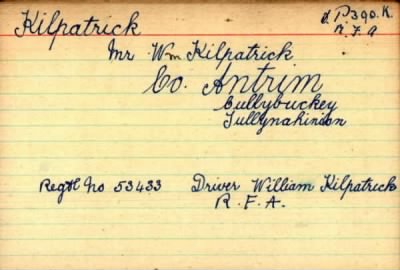 Kilpatrick
P390.K.
R.F.A
Mr Wm Kilpatrick
Co. Antrim
Cullybuckey
Tullynahinion
Regtl No 53433 Driver William Kilpatrick
R.F.A.